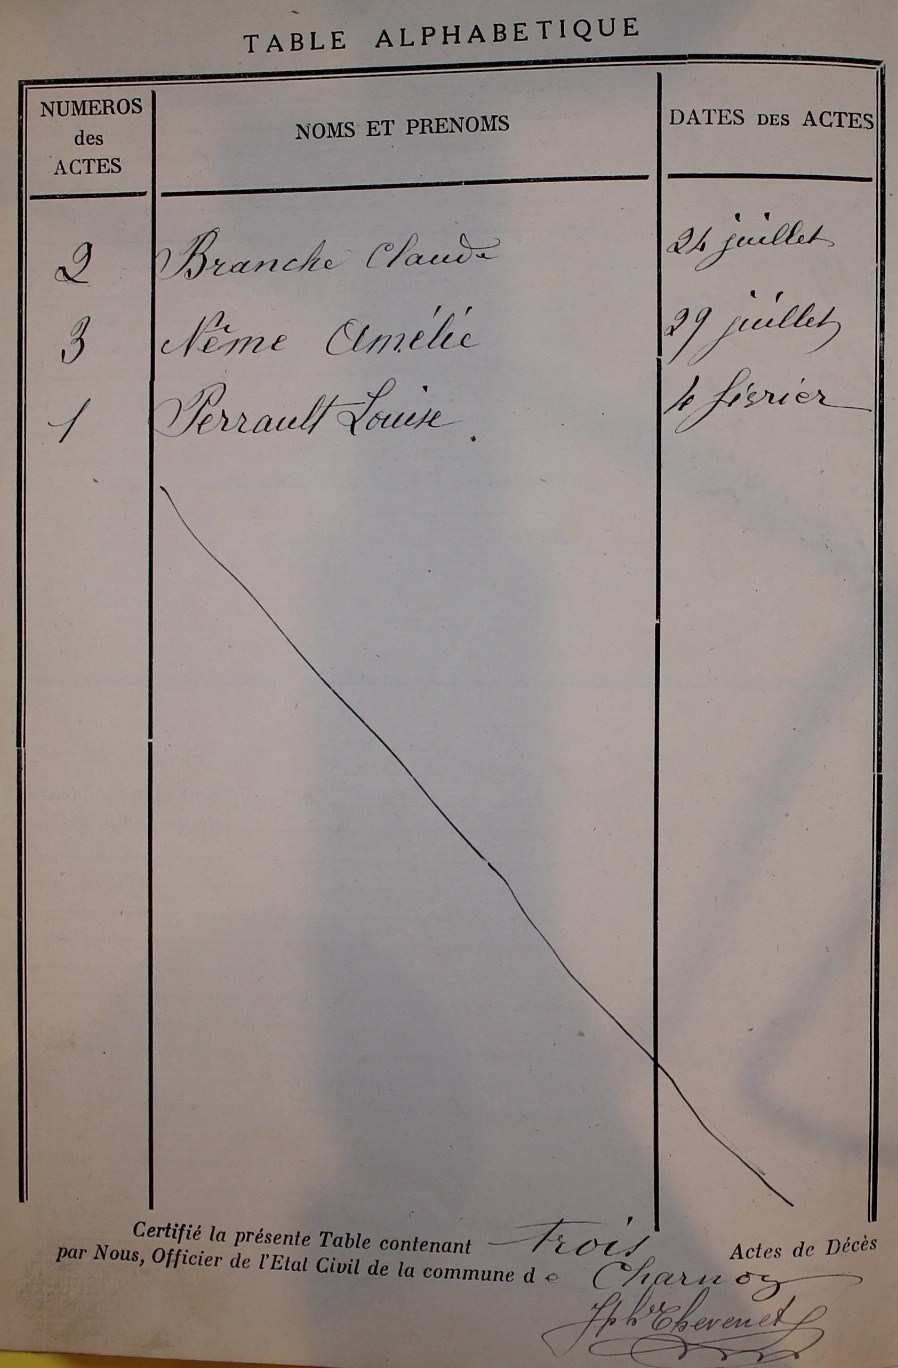 TABLE ALPHABETIQUE
NUMEROS des ACTES NOMS ET PRENOMS DATES DES ACTES
2 Branche Claude 24 juillet
3 Nême Amélie 29 juillet
1 Perrault Louise 4 février
Certifié la présente Table contenant trois Actes de Décès
par Nous, Officier de l'Etat Civil de la commune de Charnoz
Thevenet